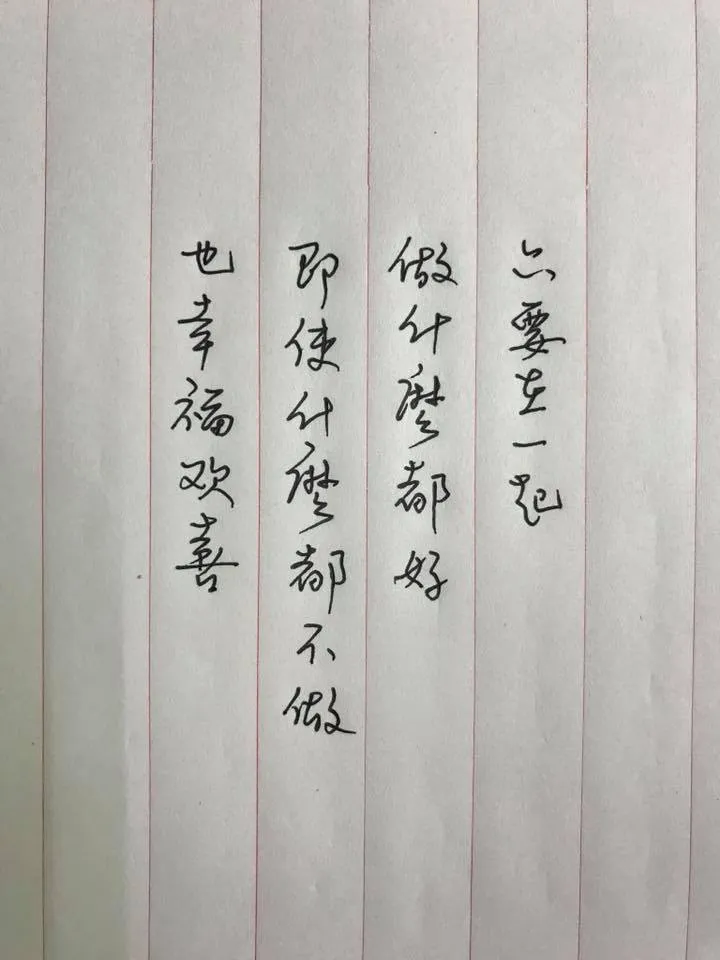 只要在一起
做什麼都好
即使什麼都不做
也幸福欢喜